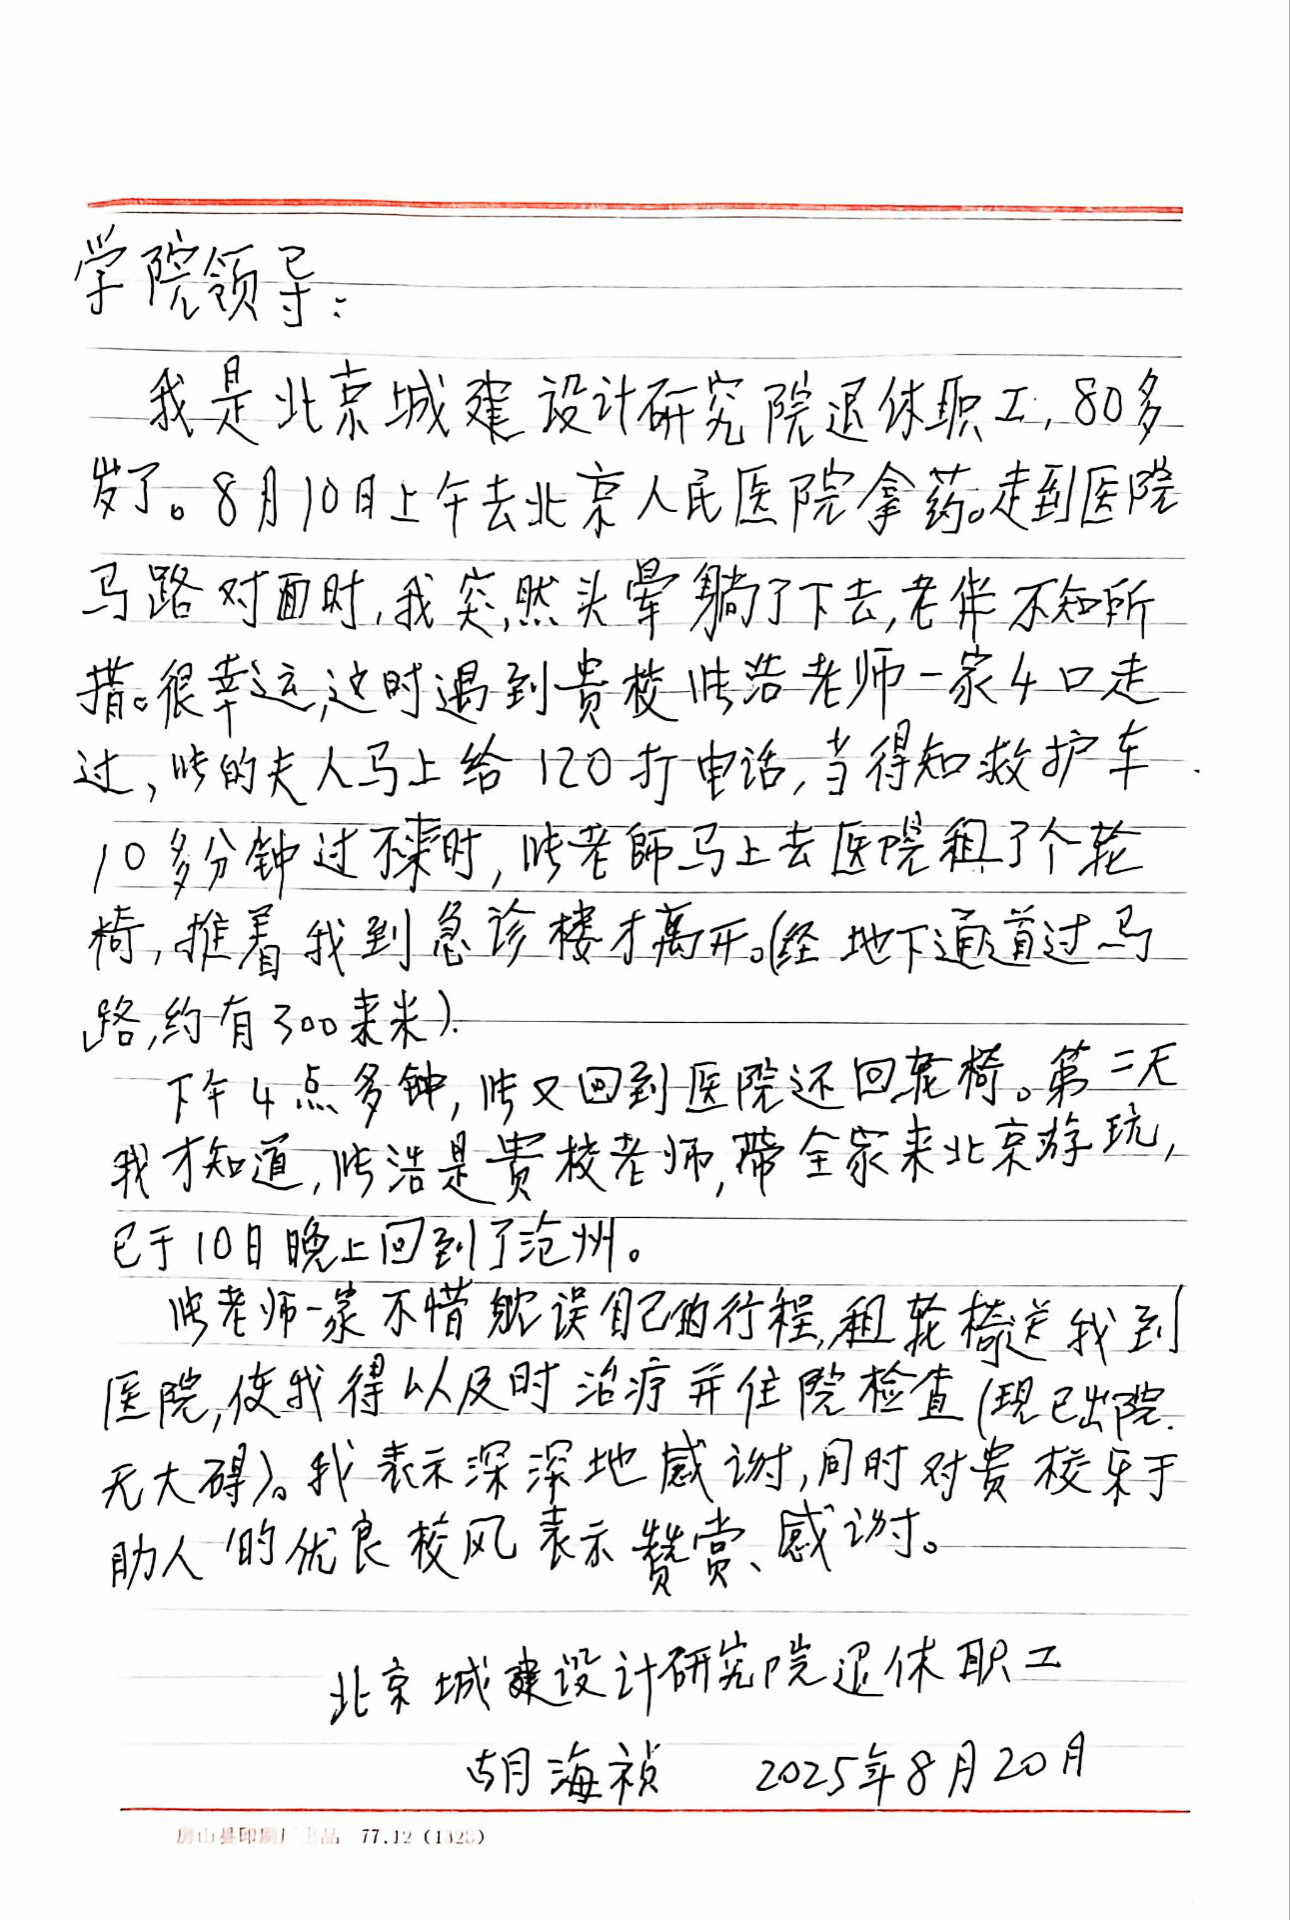 学院领导：
我是北京城建设计研究院退休职工，80多
岁了。8月10日上午去北京人民医院拿药。走到医院
马路对面时，我突然头晕躺了下去，老伴不知所
措。很幸运，这时遇到贵校张浩老师一家4口走
过，张的夫人马上给120打电话，当得知救护车
10多分钟过不来时，张老師马上去医院租了个轮
椅，推着我到急诊楼才离开。（经地下通道过马
路，约有300来米）.
下午4点多钟，张又回到医院还回轮椅。第二天
我才知道，张浩是贵校老师，带全家来北京游玩，
已于10日晚上回到了沧州。
张老师一家不惜耽误自己的行程，租轮椅送我到
医院，使我得以及时治疗并住院检查（现已出院.
无大碍）。我表示深深地感谢，同时对贵校乐于
助人的优良校风表示赞赏、感谢。
北京城建设计研究院退休职工
胡海祯 2025年8月20日
房山县印刷厂出品 77.12（1328）